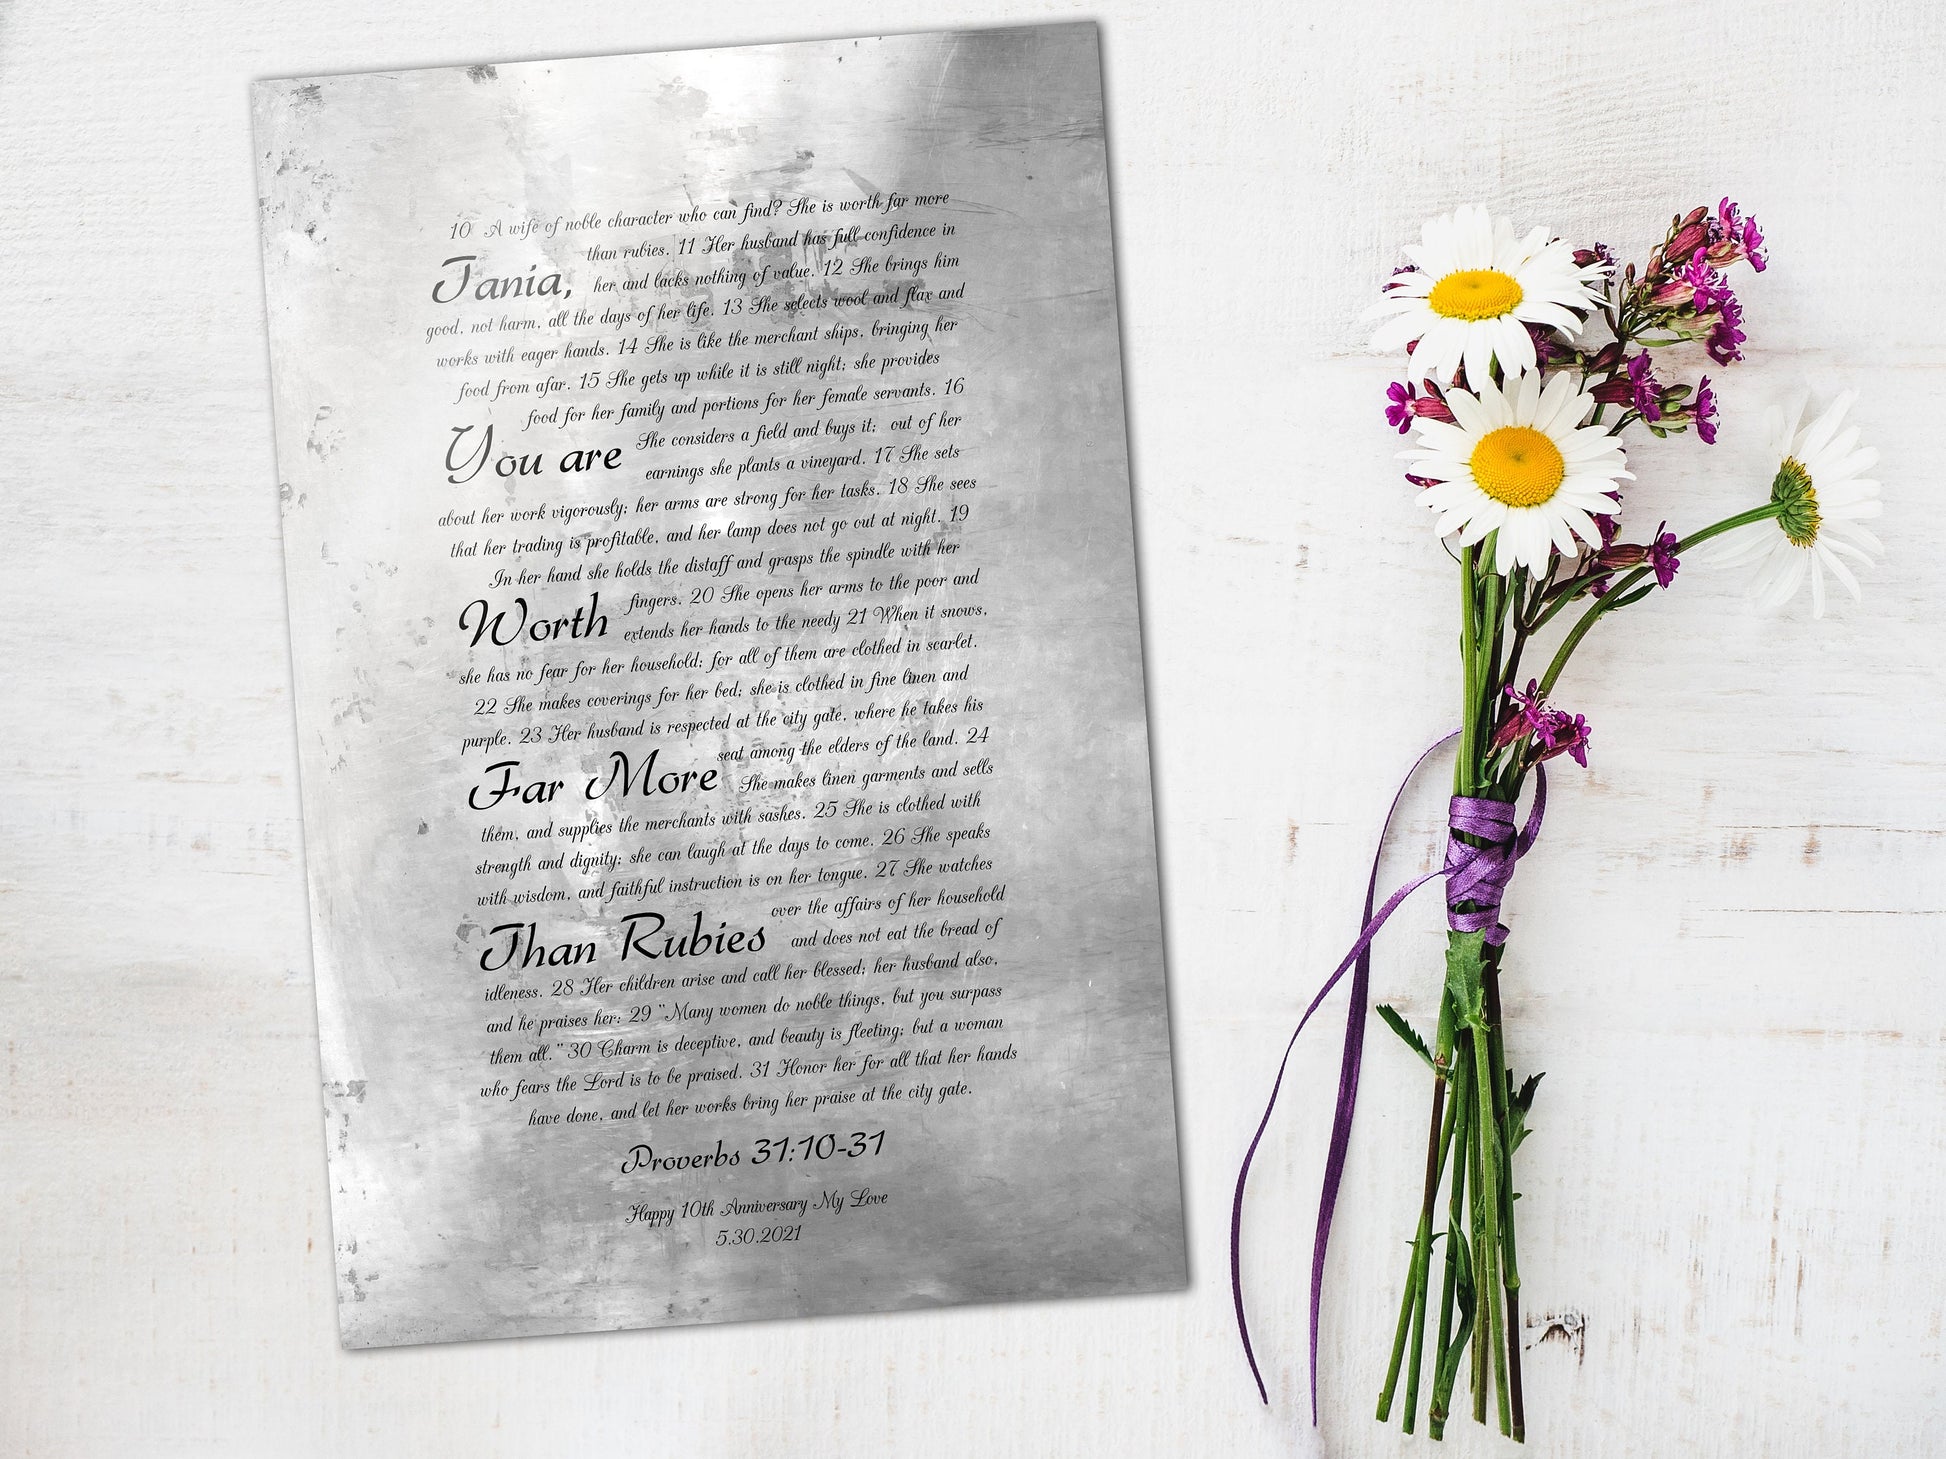 10 A wife of noble character who can find? She is worth far more
than rubies. 11 Her husband has full confidence in
Tania, her and lacks nothing of value. 12 She brings him
good, not harm, all the days of her life. 13 She selects wool and flax and
works with eager hands. 14 She is like the merchant ships, bringing her
food from afar. 15 She gets up while it is still night; she provides
food for her family and portions for her female servants. 16
You are She considers a field and buys it; out of her
earnings she plants a vineyard. 17 She sets
about her work vigorously; her arms are strong for her tasks. 18 She sees
that her trading is profitable, and her lamp does not go out at night. 19
In her hand she holds the distaff and grasps the spindle with her
fingers. 20 She opens her arms to the poor and
Worth extends her hands to the needy 21 When it snows,
she has no fear for her household; for all of them are clothed in scarlet.
22 She makes coverings for her bed; she is clothed in fine linen and
purple. 23 Her husband is respected at the city gate, where he takes his
seat among the elders of the land. 24
Far More She makes linen garments and sells
them, and supplies the merchants with sashes. 25 She is clothed with
strength and dignity; she can laugh at the days to come. 26 She speaks
with wisdom, and faithful instruction is on her tongue. 27 She watches
over the affairs of her household
Than Rubies and does not eat the bread of
idleness. 28 Her children arise and call her blessed; her husband also,
and he praises her: 29 "Many women do noble things, but you surpass
them all." 30 Charm is deceptive, and beauty is fleeting; but a woman
who fears the Lord is to be praised. 31 Honor her for all that her hands
have done, and let her works bring her praise at the city gate.
Proverbs 31:10-31
Happy 10th Anniversary My Love
5.30.2021